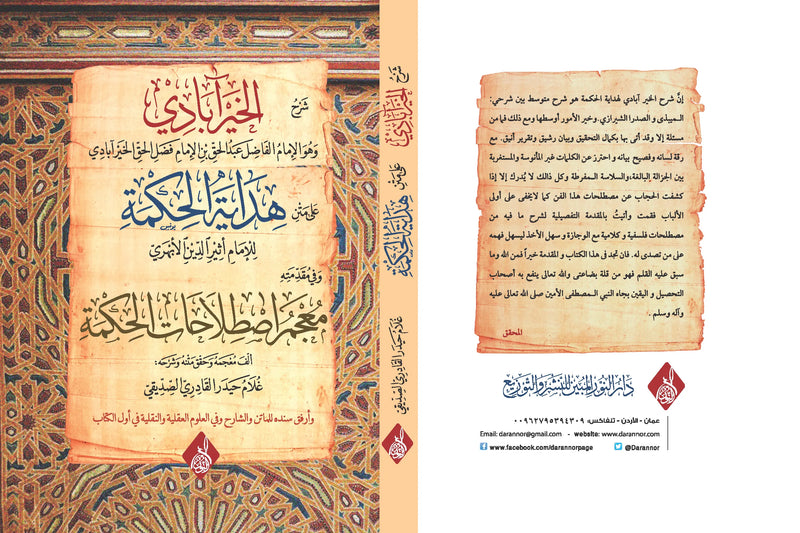 شرح
الخير آبادي
وهو الإمام الفاضل عبد الحق بن الإمام فضل الحق الخير آبادي
على متن
هداية الحكمة
للإمام أثير الدين الأبهري
وفي مقدمته
معجم اصطلاحات الحكمة
ألف معجمه وحقق متنه وشرحه:
غلام حيدر القادري الصديقي
وأرفق سنده للماتن والشارح وفي العلوم العقلية والنقلية في أول الكتاب
شرح
الخير آبادي
على متن
هداية الحكمة
غلام حيدر القادري الصديقي
إنَّ شرح الخير آبادي لهداية الحكمة هو شرح متوسط بين شرحي:
الميبدي و الصدرا الشيرازي. وخير الأمور أوسطها ومع ذلك فما من
مسئلة إلا وقد أتى بها بكمال التحقيق وبيان رشيق وتقرير أنيق. مع
رقة لسانه وفصيح بيانه و احترز عن الكلمات غير المأنوسة والمستغربة
بين الجزالة البالغة، والسلاسة المفرطة وكل ذلك لا يُدرك إلا إذا
كشفت الحجاب عن مصطلحات هذا الفن كما لايخفى على أولى
الألباب فقمت وأتيتُ بالمقدمة التفصيلية لشرح ما فيه من
مصطلحات فلسفية و كلامية مع الوجازة و سهل الأخذ ليسهل فهمه
على من تصدى له. فان تجد فى هذا الكتاب و المقدمة خيراً فمن الله وما
سبق عليه القلم فهو من قلة بضاعتى والله تعالى ينفع به أصحاب
التحصيل و اليقين بجاه النبي المصطفى الأمين صلى الله تعالى عليه
وآله وسلم.
المحقق
دار النور المبين للنشر والتوزيع
عمان - الأردن - تلفاكس: ٠٠٩٦٢٧٩٥٣٩٤٣٠٩
Email: darannor@gmail.com - website: www.darannor.com
www.facebook.com/darannorpage @Darannor